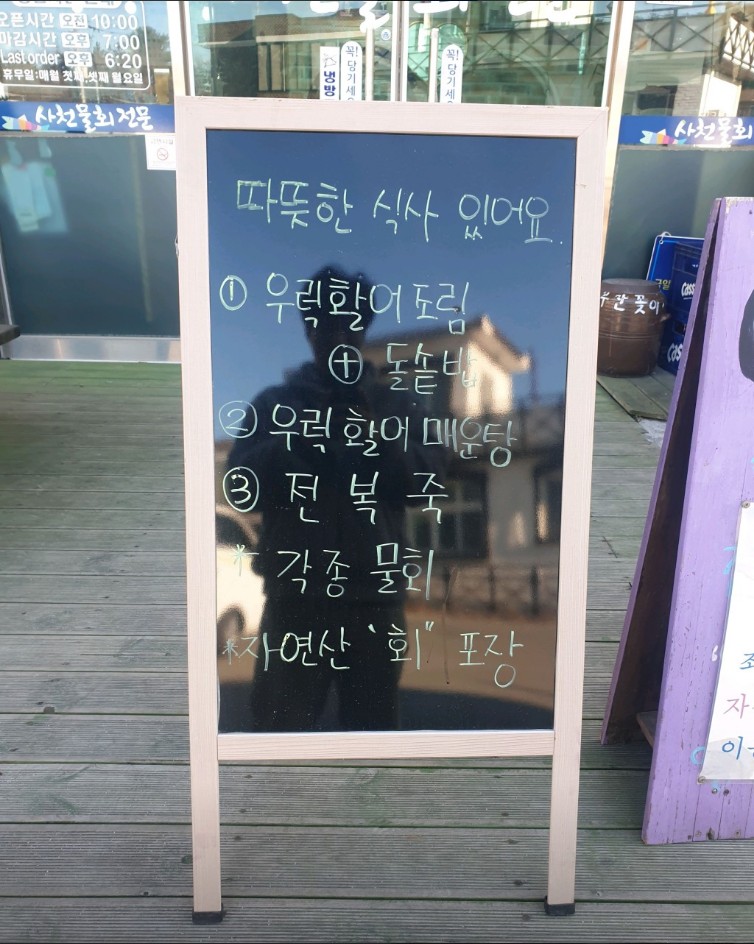 오픈시간 오전 10:00
마감시간 오후 7:00
Last order 오후 6:20
휴무일:매월 첫째,셋째 월요일
냉방
꼭! 당기세
꼭! 당기세
사천물회전문
사천물회
따뜻한 식사 있어요.
① 우럭활어조림
⊕ 돌솥밥
② 우럭활어 매운탕
③ 전복죽
* 각종 물회
*자연산 "회" 포장
꽂이
Cass
자
이